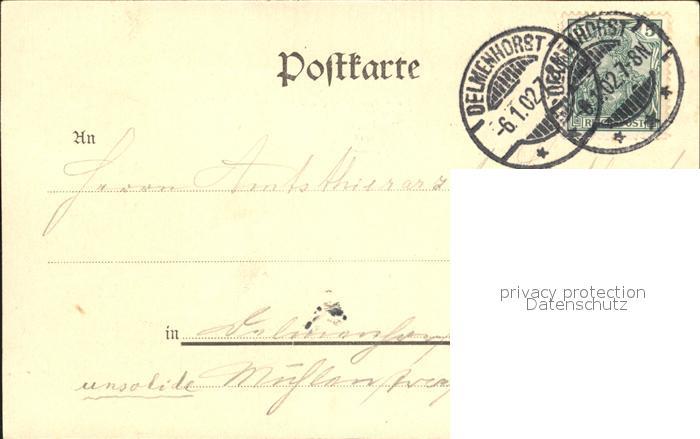 Postkarte
DELMENHORST
-6.1.02.7
DELMENHORST
-6.1.02.7-8N.
5
REICHSPOST
An
Herrn Amtsthierarz
privacy protection
Datenschutz
in Delmenhor
unsolide Mühlenstra